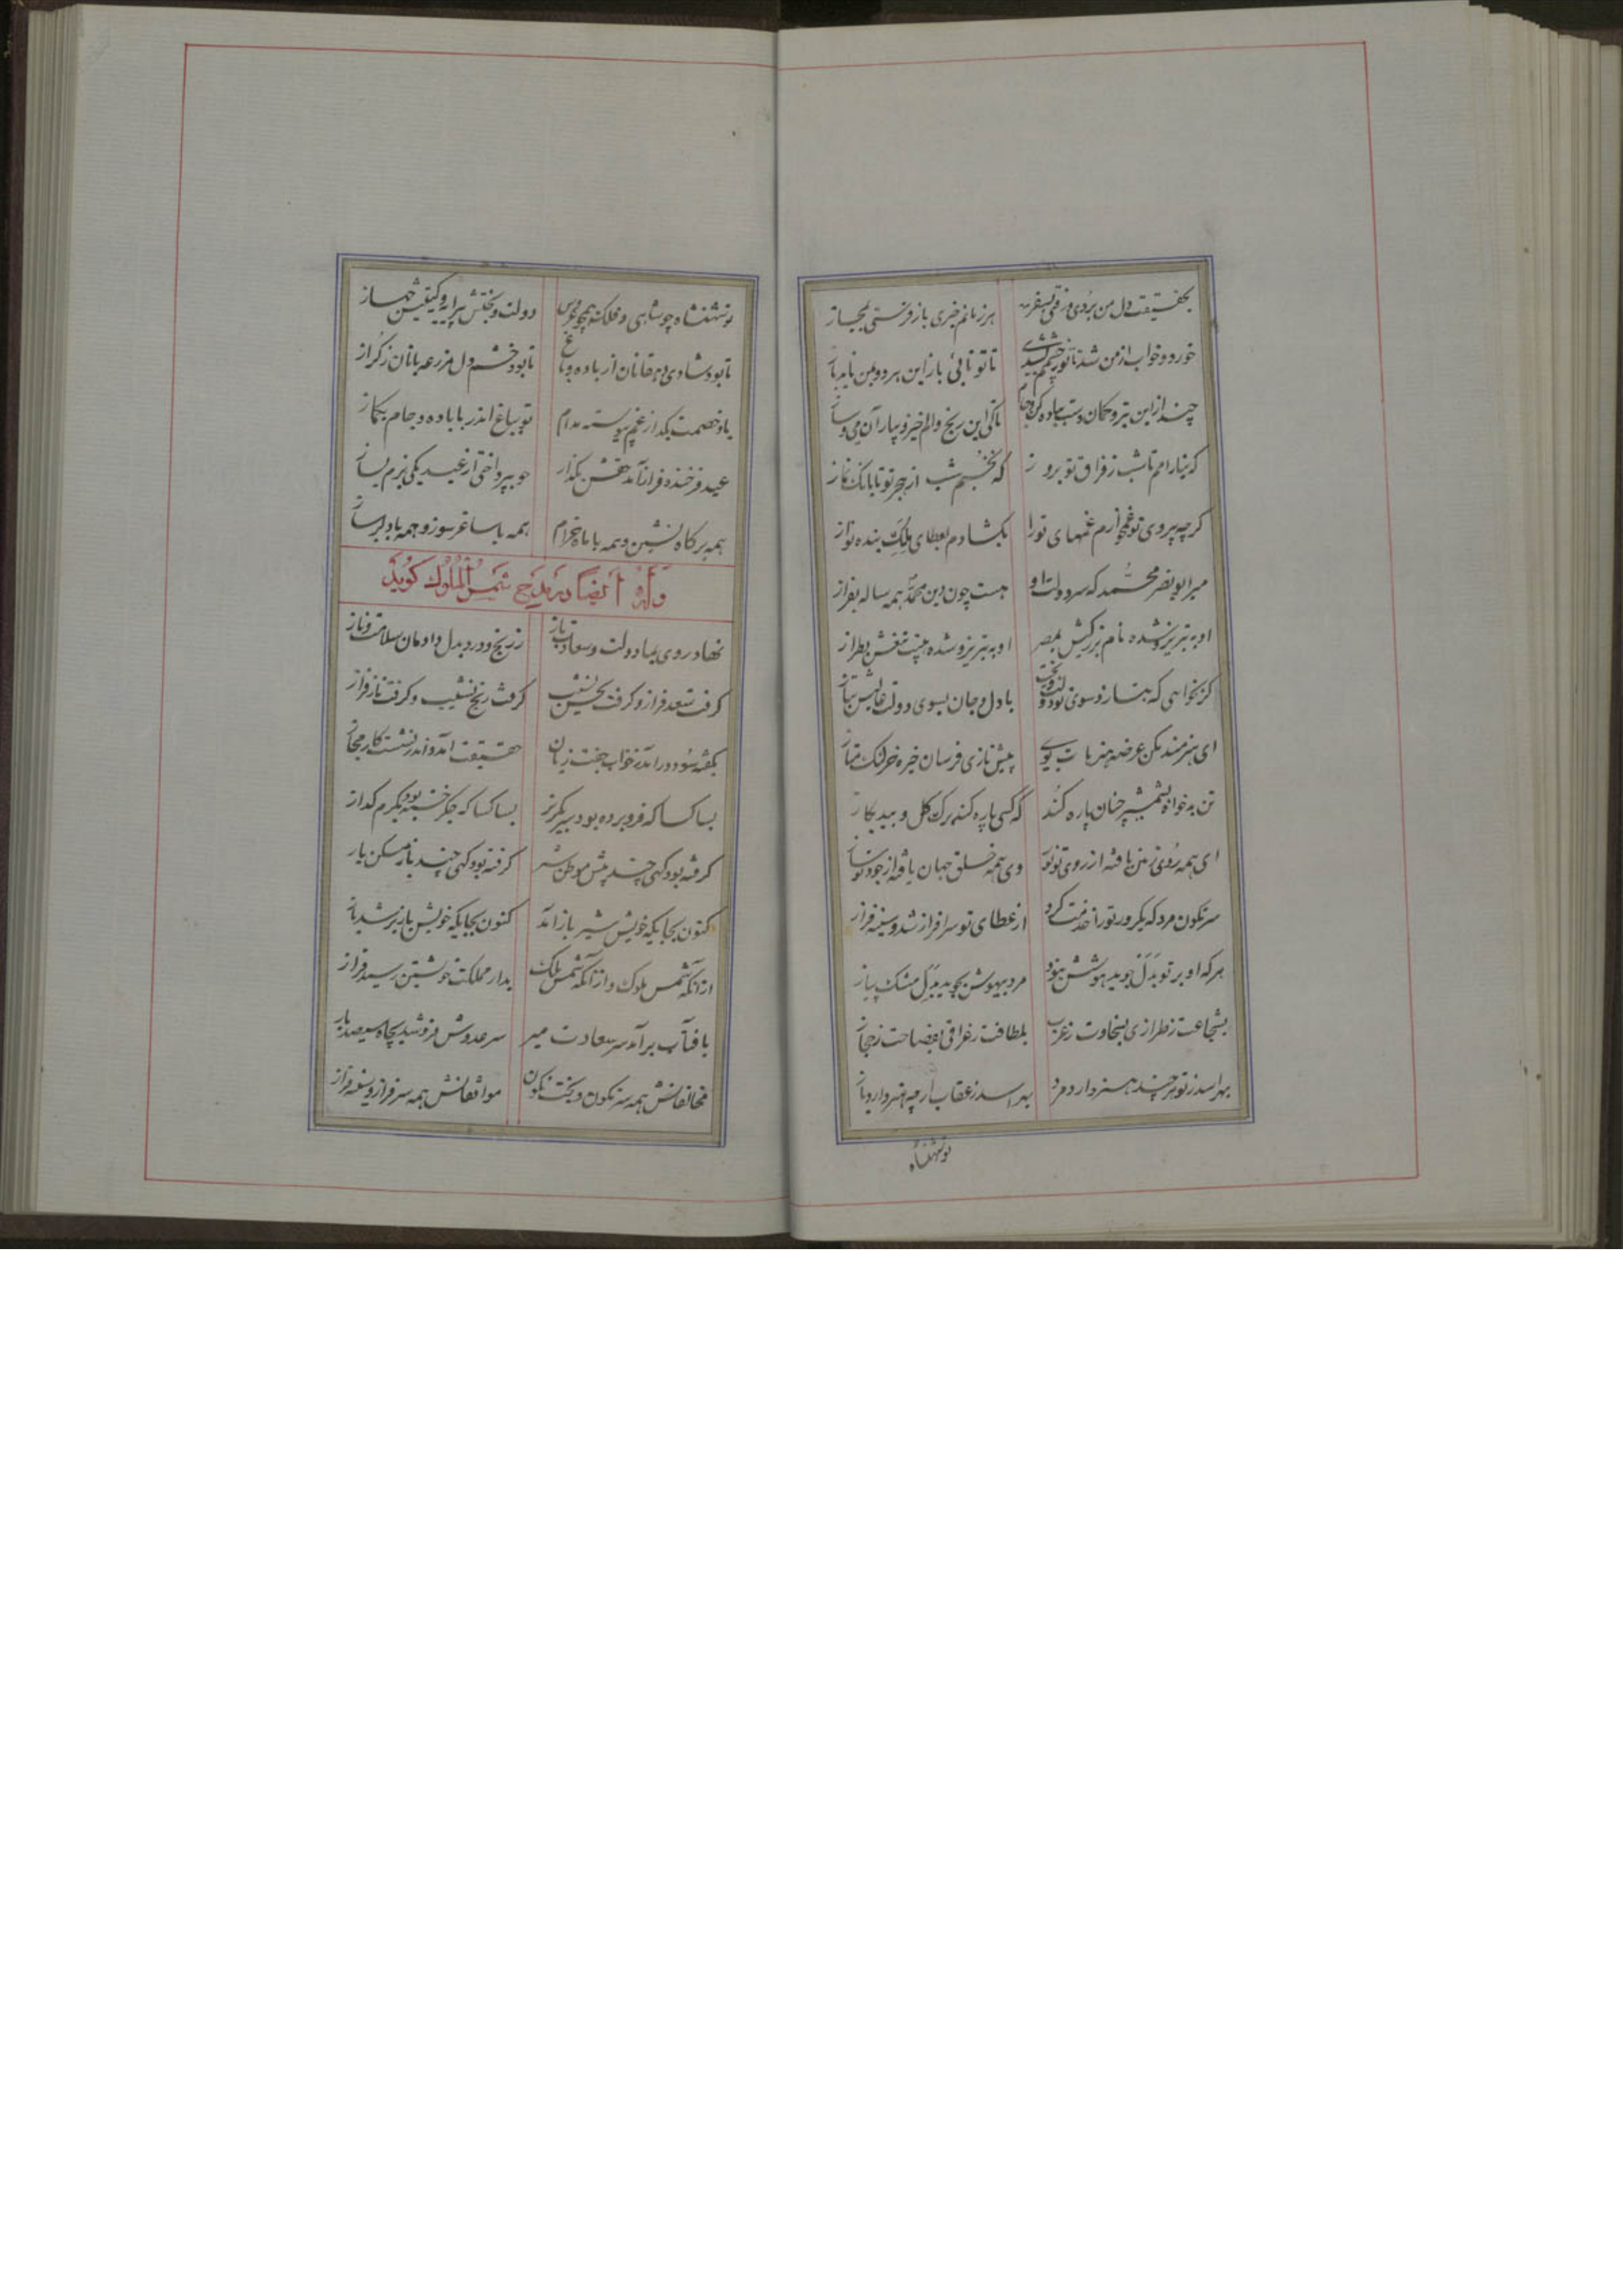 بحقیقت دل من بردی و رفتی بسفر هر زمانم خبری باز فرستی بمجاز
خورد و خواب از من شد تا تو ز چشمم شدی تا تو نائی باز این هر دو بمن ناید باز
چند از این تیر و کمان دست بباده کن و جام تا کی این رنج و الم خیز و بیار آن می و ساز
که نیارامم تا شب ز فراق تو بروز که نخسبم شب از هجر تو تا بانک نماز
کرچه پیروی تو غمهای تو را بکشادم بعطای ملک بنده نواز
میر ابونصر محمد که سر دولت او هست چون دین محمد همه ساله بفراز
او به تبریز و شده نام بزرکیش بمصر او به تبریز و شده هیبت تیغش بطراز
کر بخواهی که بتازد سوی تو دولت و بخت با دل و جان بسوی دولت عالیش بتاز
ای هنرمند مکن عرضه هنر پیش تازی فرسان خیره خر لنک متاز
تن بدخواه بشمشیر چنان پاره کند که کسی پاره کند برک کل و بید بکاز
ای همه روی زمین یافته از روی تو وی همه خلق جهان یافته از جود تو
سرنکون مرد که یکروز تو را خدمت کرد از عطای تو سرافراز شد و سینه فراز
هر که او بر تو بدل جوید هوشش نبود مرد بیهوش بجوید بدل مشک پیاز
بشجاعت ز طرازی بسخاوت ز عرب بلطافت ز عراقی بفصاحت ز حجاز
بهراسد ز تو هر چند هنر دارد مرد بهراسد ز عقاب ارچه هنر دارد باز
تو شهنشاه
تو شهنشاه چو شاهی و ملکت همچو عروس دولت و بختش پیرایه و کیتیش جهاز
تا بود شادی دهقانان از باده و باغ تا بود خشم دل مزرعه بانان ز کراز
باد خصمت بکداز غم پیوسته مدام تو بباغ اندر با باده و جام بکماز
عید فرخنده فراز آمد حقش بکذار چو بپرداختی از عید یکی بزم بساز
همه بر کاه نشین و همه با ماه بخرام همه با ساغر سوز و همه با دلبر ساز
وله ایضا در مدح شمس الملوک کوید
نهاد روی بما دولت و سعادت باز ز رنج و درد بدل دادمان سلامت و ناز
کرفت سعد فراز و کرفت نحس نشیب کرفت رنج نشیب و کرفت ناز فراز
حقیقت آمد و اندر نشست کار مجاز
بسا کسا که فرو برده بود سر بکریز بسا کسا که جکر خسته بود بکرم کداز
کرفته بود کهی چند میش موطن شیر کرفته بود کهی چند باز مسکن باز
کنون بجایکه خویش شیر باز آمد کنون بجایکه خویش باز بر شد باز
از آنکه شمس ملوک و از آنکه شمس ملک بدار مملکت خویشتن رسید فراز
بافتاب برآمد سر سعادت میر سر عدوش فروشد بچاه سیصد باز
مخالفانش همه سرنکون و بخت نکون موافقانش همه سرفراز و سینه فراز